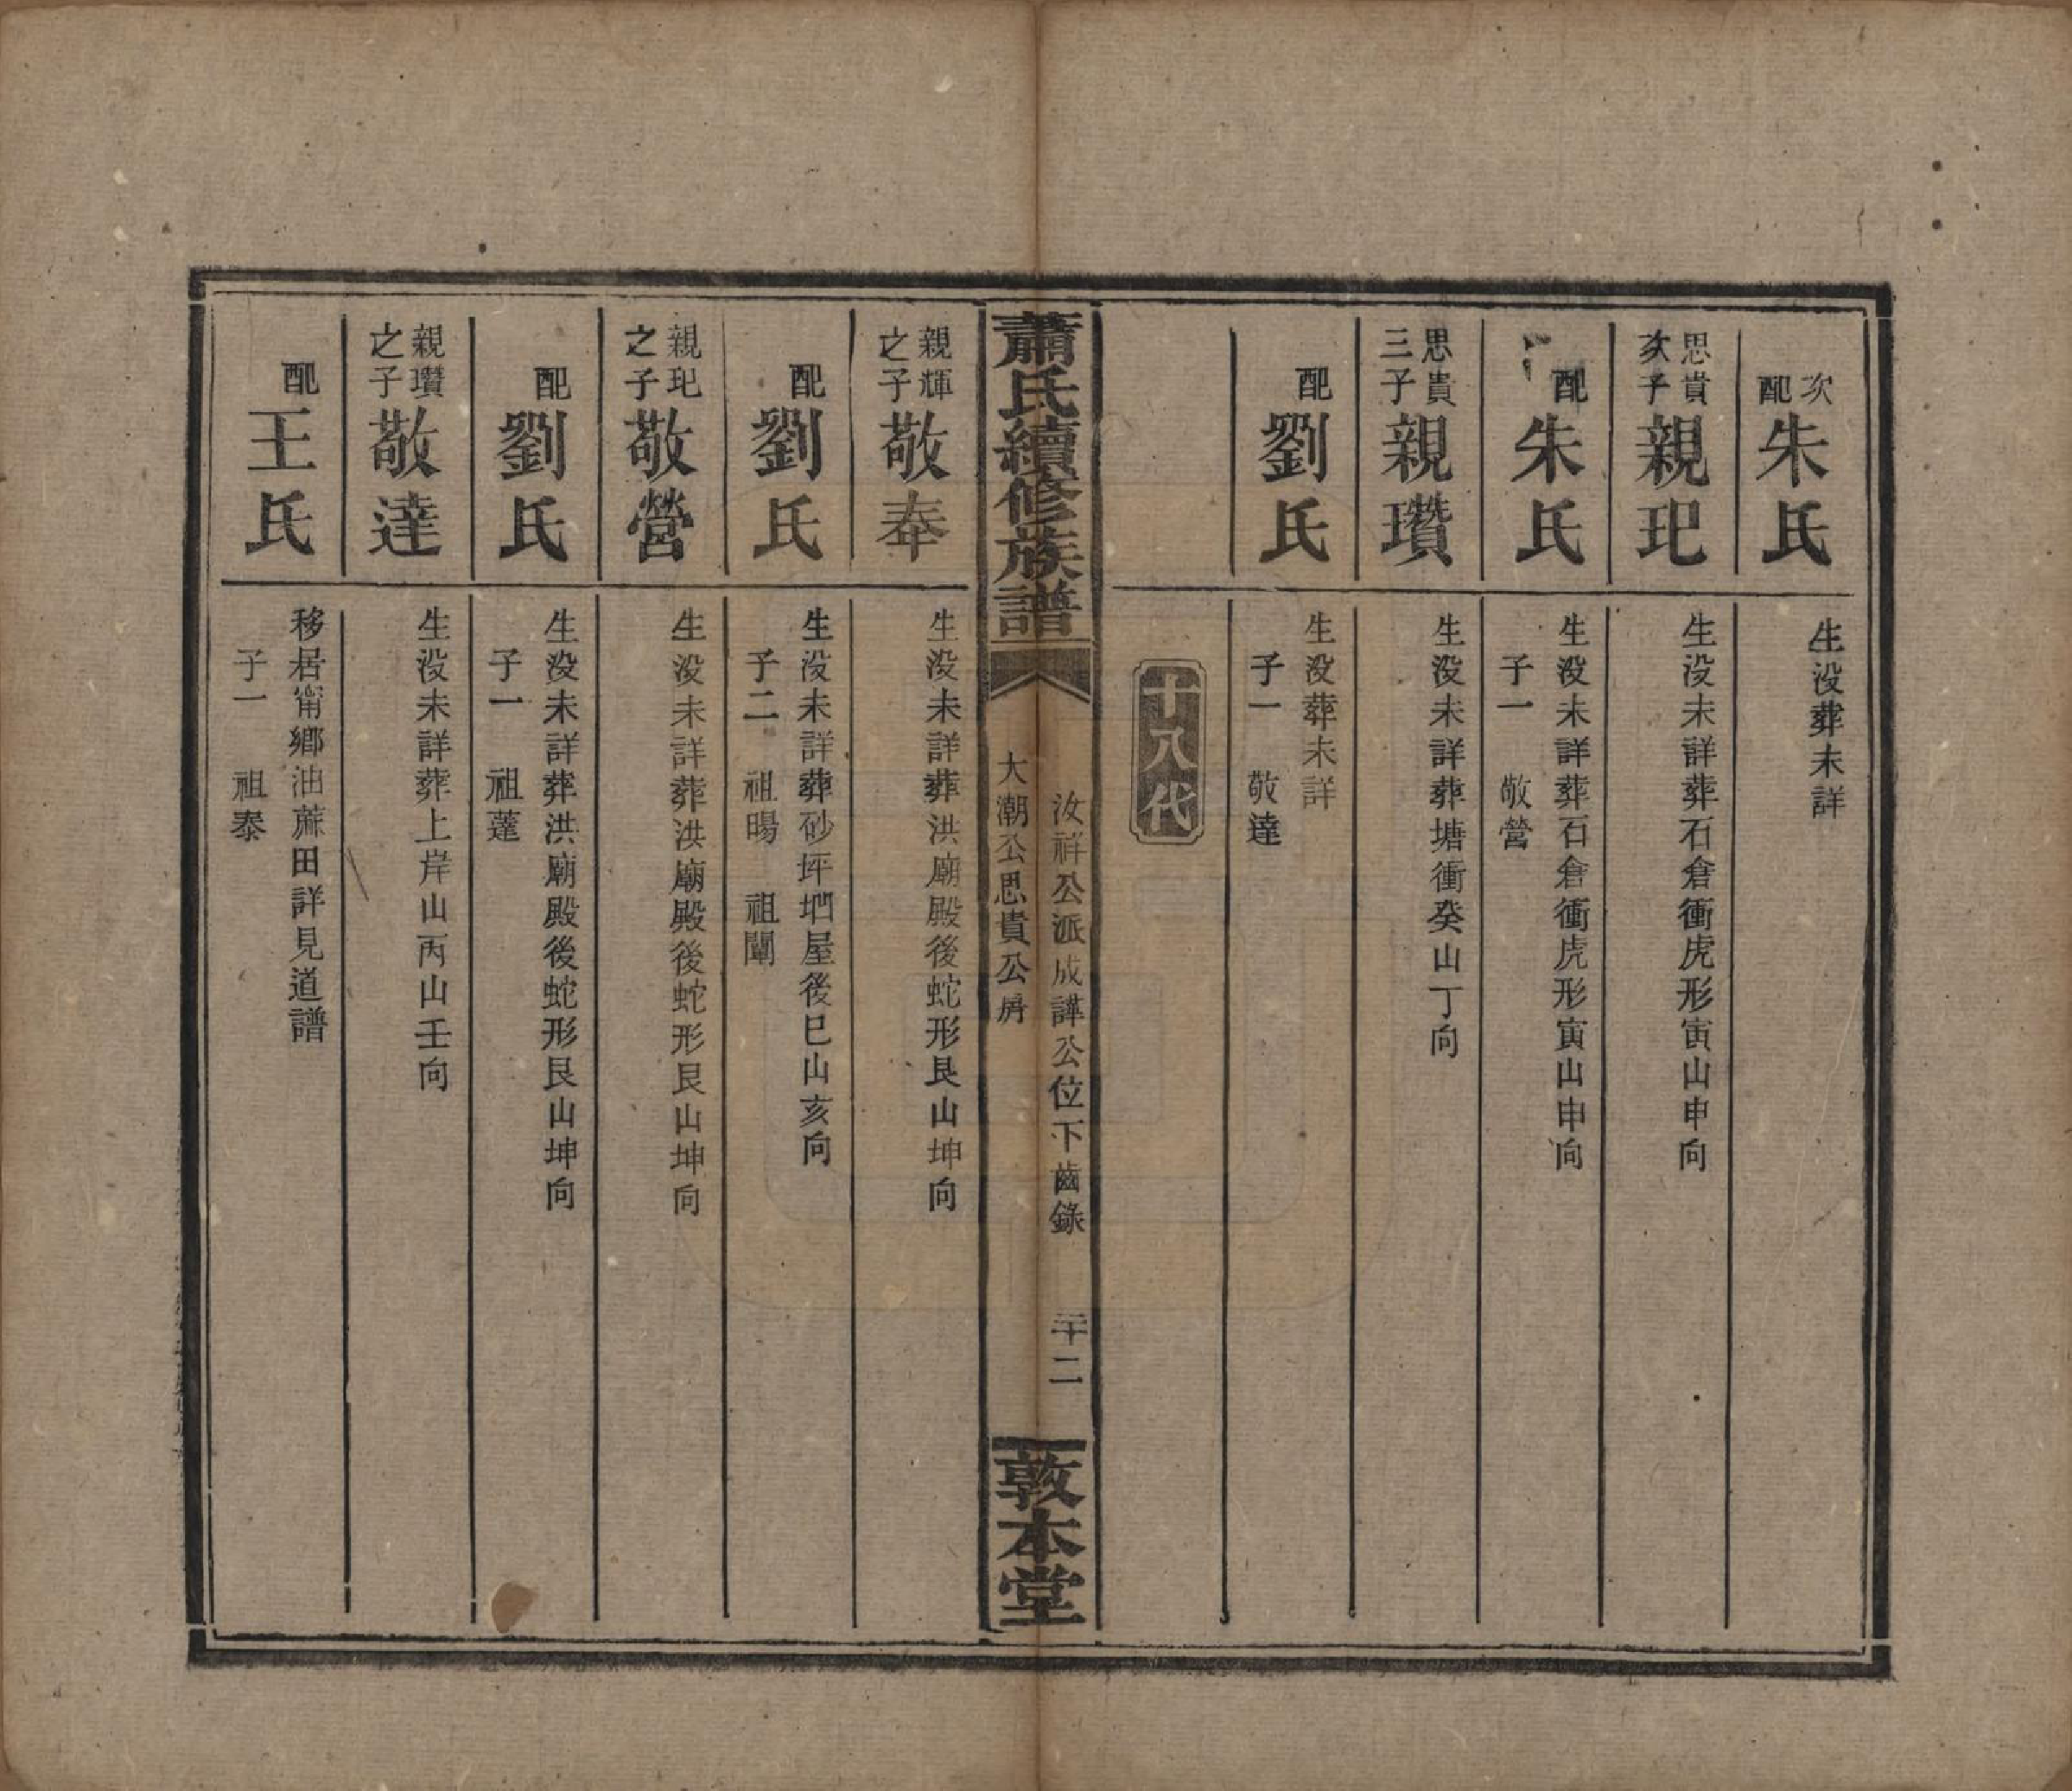 次配朱氏
生没葬未詳
思貴次子親玘
生没未詳葬石倉衝虎形寅山申向
配朱氏
生没未詳葬石倉衝虎形寅山申向
子一　敬營
思貴三子親瓚
生没未詳葬塘衝癸山丁向
配劉氏
生没葬未詳
子一　敬達
十八代
蕭氏續修族譜
汝祥公派成譁公位下齒錄　二十二
大潮公思貴公房
敦本堂
親輝之子敬奉
生没未詳葬洪廟殿後蛇形艮山坤向
配劉氏
生没未詳葬砂坪䦉屋後巳山亥向
子二　祖暘　祖闡
親玘之子敬營
生没未詳葬洪廟殿後蛇形艮山坤向
配劉氏
生没未詳葬洪廟殿後蛇形艮山坤向
子一　祖蓬
親瓚之子敬達
生没未詳葬上岸山丙山壬向
配王氏
移居甯鄉油蔴田詳見道譜
子一　祖泰